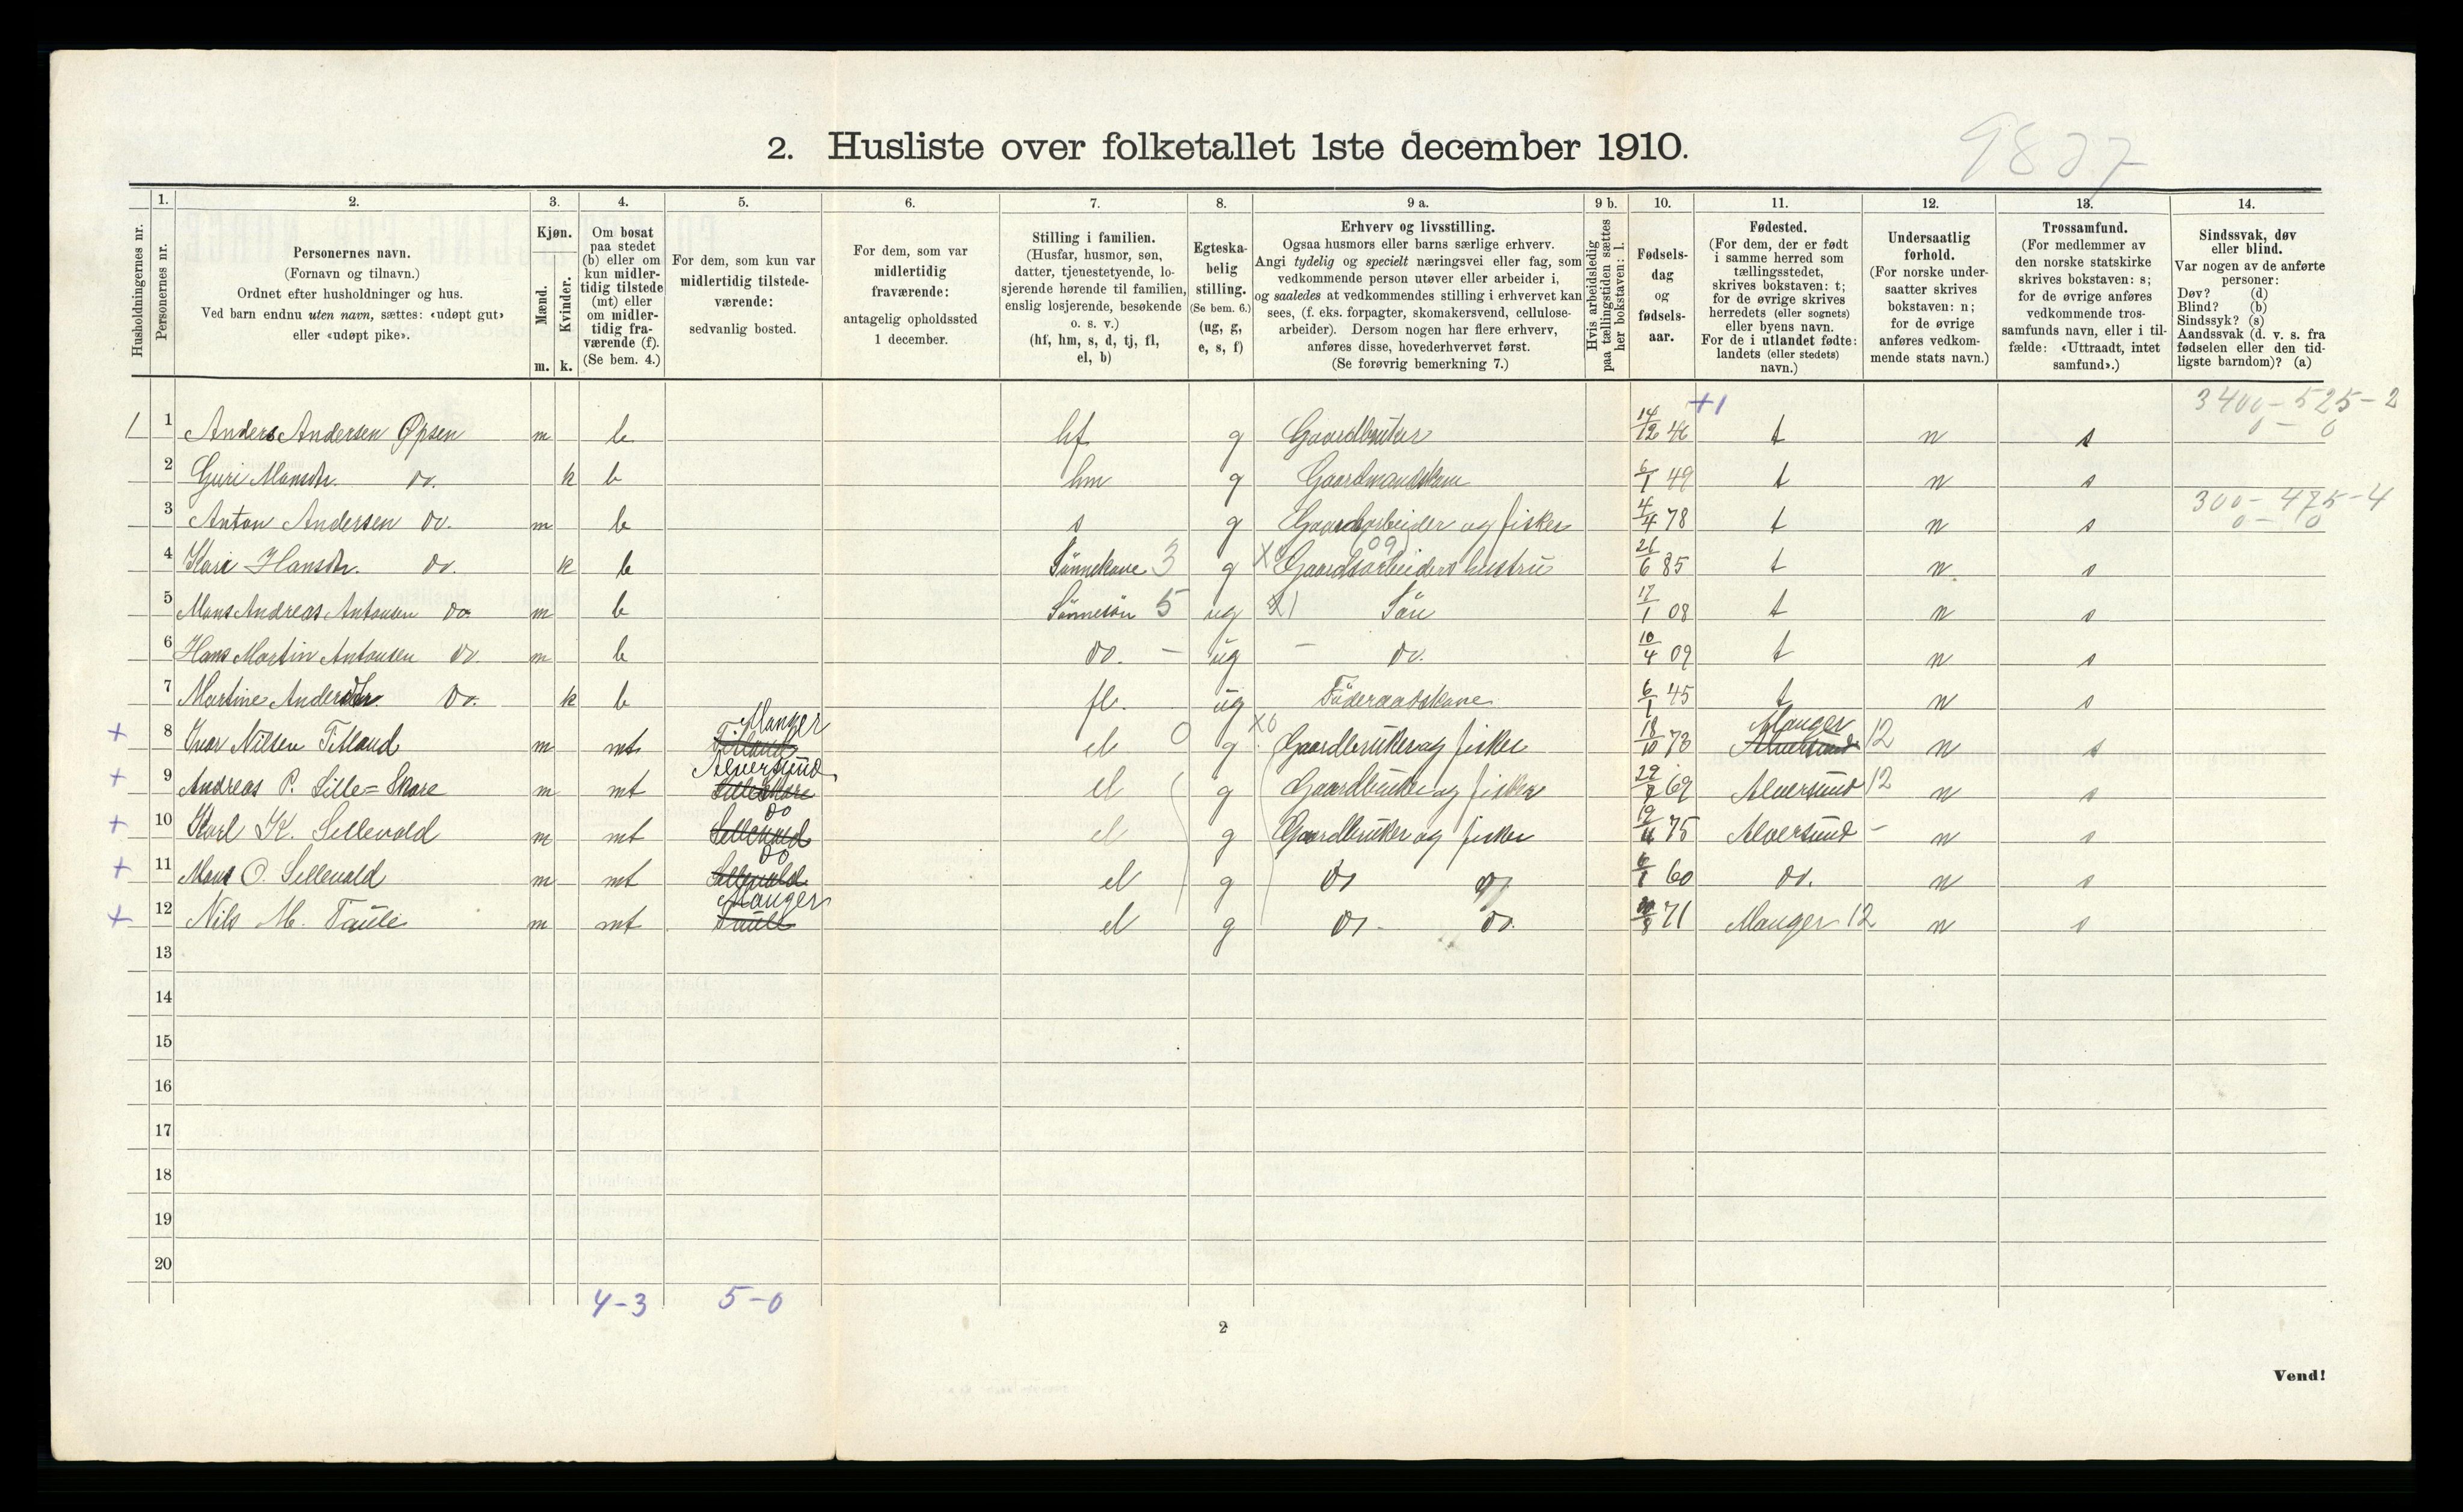 9827
2. Husliste over folketallet 1ste december 1910.
Husholdningernes nr.
1. Personernes nr.
2. Personernes navn.
(Fornavn og tilnavn.)
Ordnet efter husholdninger og hus.
Ved barn endnu uten navn, sættes: «udøpt gut»
eller «udøpt pike».
3. Kjøn.
Mænd. m.
Kvinder. k.
4. Om bosat
paa stedet
(b) eller om
kun midler-
tidig tilstede
(mt) eller
om midler-
tidig fra-
værende (f).
(Se bem. 4.)
5. For dem, som kun var
midlertidig tilstede-
værende:
sedvanlig bosted.
6. For dem, som var
midlertidig
fraværende:
antagelig opholdssted
1 december.
7. Stilling i familien.
(Husfar, husmor, søn,
datter, tjenestetyende, lo-
sjerende hørende til familien,
enslig losjerende, besøkende
o. s. v.)
(hf, hm, s, d, tj, fl,
el, b)
8. Egteska-
belig
stilling.
(Se bem. 6.)
(ug, g,
e, s, f)
9 a. Erhverv og livsstilling.
Ogsaa husmors eller barns særlige erhverv.
Angi tydelig og specielt næringsvei eller fag, som
vedkommende person utøver eller arbeider i,
og saaledes at vedkommendes stilling i erhvervet kan
sees, (f. eks. forpagter, skomakersvend, cellulose-
arbeider). Dersom nogen har flere erhverv,
anføres disse, hovederhvervet først.
(Se forøvrig bemerkning 7.)
9 b. Hvis arbeidsledig
paa tællingstiden sættes
her bokstaven: l.
10. Fødsels-
dag
og
fødsels-
aar.
11. Fødested.
(For dem, der er født
i samme herred som
tællingsstedet,
skrives bokstaven: t;
for de øvrige skrives
herredets (eller sognets)
eller byens navn.
For de i utlandet fødte:
landets (eller stedets)
navn.)
12. Undersaatlig
forhold.
(For norske under-
saatter skrives
bokstaven: n;
for de øvrige
anføres vedkom-
mende stats navn.)
13. Trossamfund.
(For medlemmer av
den norske statskirke
skrives bokstaven: s;
for de øvrige anføres
vedkommende tros-
samfunds navn, eller i til-
fælde: «Uttraadt, intet
samfund».)
14. Sindssvak, døv
eller blind.
Var nogen av de anførte
personer:
Døv? (d)
Blind? (b)
Sindssyk? (s)
Aandssvak (d. v. s. fra
fødselen eller den tid-
ligste barndom)? (a)
+1 3400 - 525 - 2
0 - 0
1 1 Anders Andersen Opsen m b hf g Gaardbruker 14/12 46 t n s
2 Guri Mansdtr. do. k b hm g Gaardmandskone 6/1 49 t n s
300 - 475 - 4
0 - 0
3 Anton Andersen do. m b s g Gaardsarbeider og fisker 4/4 78 t n s
09
4 Kari Hansdtr. do. k b Sønnekone 3 g X Gaardsarbeiders hustru 26/6 85 t n s
5 Mons Andreas Antonsen do. m b Sønnesøn 5 ug X1 Søn 17/1 08 t n s
6 Hans Martin Antonsen do. m b do. - ug - do. 10/4 09 t n s
7 Martine Andersdtr. do. k b fl. ug Føderaadskone 6/1 45 t n s
+ 8 Ivar Nilsen Titland m mt Titland Manger el 0 g X0 Gaardbruker og fisker 18/10 73 Alversund Manger 12 n s
+ 9 Andreas P. Lille=Skare m mt Lilleskare Alversund el g Gaardbruker og fisker 29/9 69 Alversund 12 n s
+ 10 Karl K. Sellevold m mt Sellevold do el g Gaardbruker og fisker 75 Alversund - n s
+ 11 Mons O. Sellevold m mt Sellevold do el g do do 6/1 60 do. n s
+ 12 Nils M. Taule m mt Taule Manger el g do. do. 71 Manger 12 n s
13
14
15
16
17
18
19
20
4-3 5-0
2
Vend!